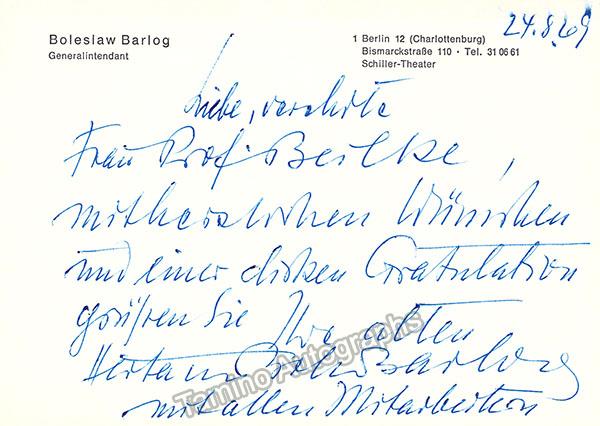 24.8.69
Boleslaw Barlog
Generalintendant
1 Berlin 12 (Charlottenburg)
Bismarckstraße 110 · Tel. 31 06 61
Schiller-Theater
Liebe, verehrte
Frau Prof. Beilke,
mit herzlichen Wünschen
und einer dicken Gratulation
grüßen Sie Ihre alten
Herta und Barlog
mit allen Mitarbeitern
Tamino Autographs